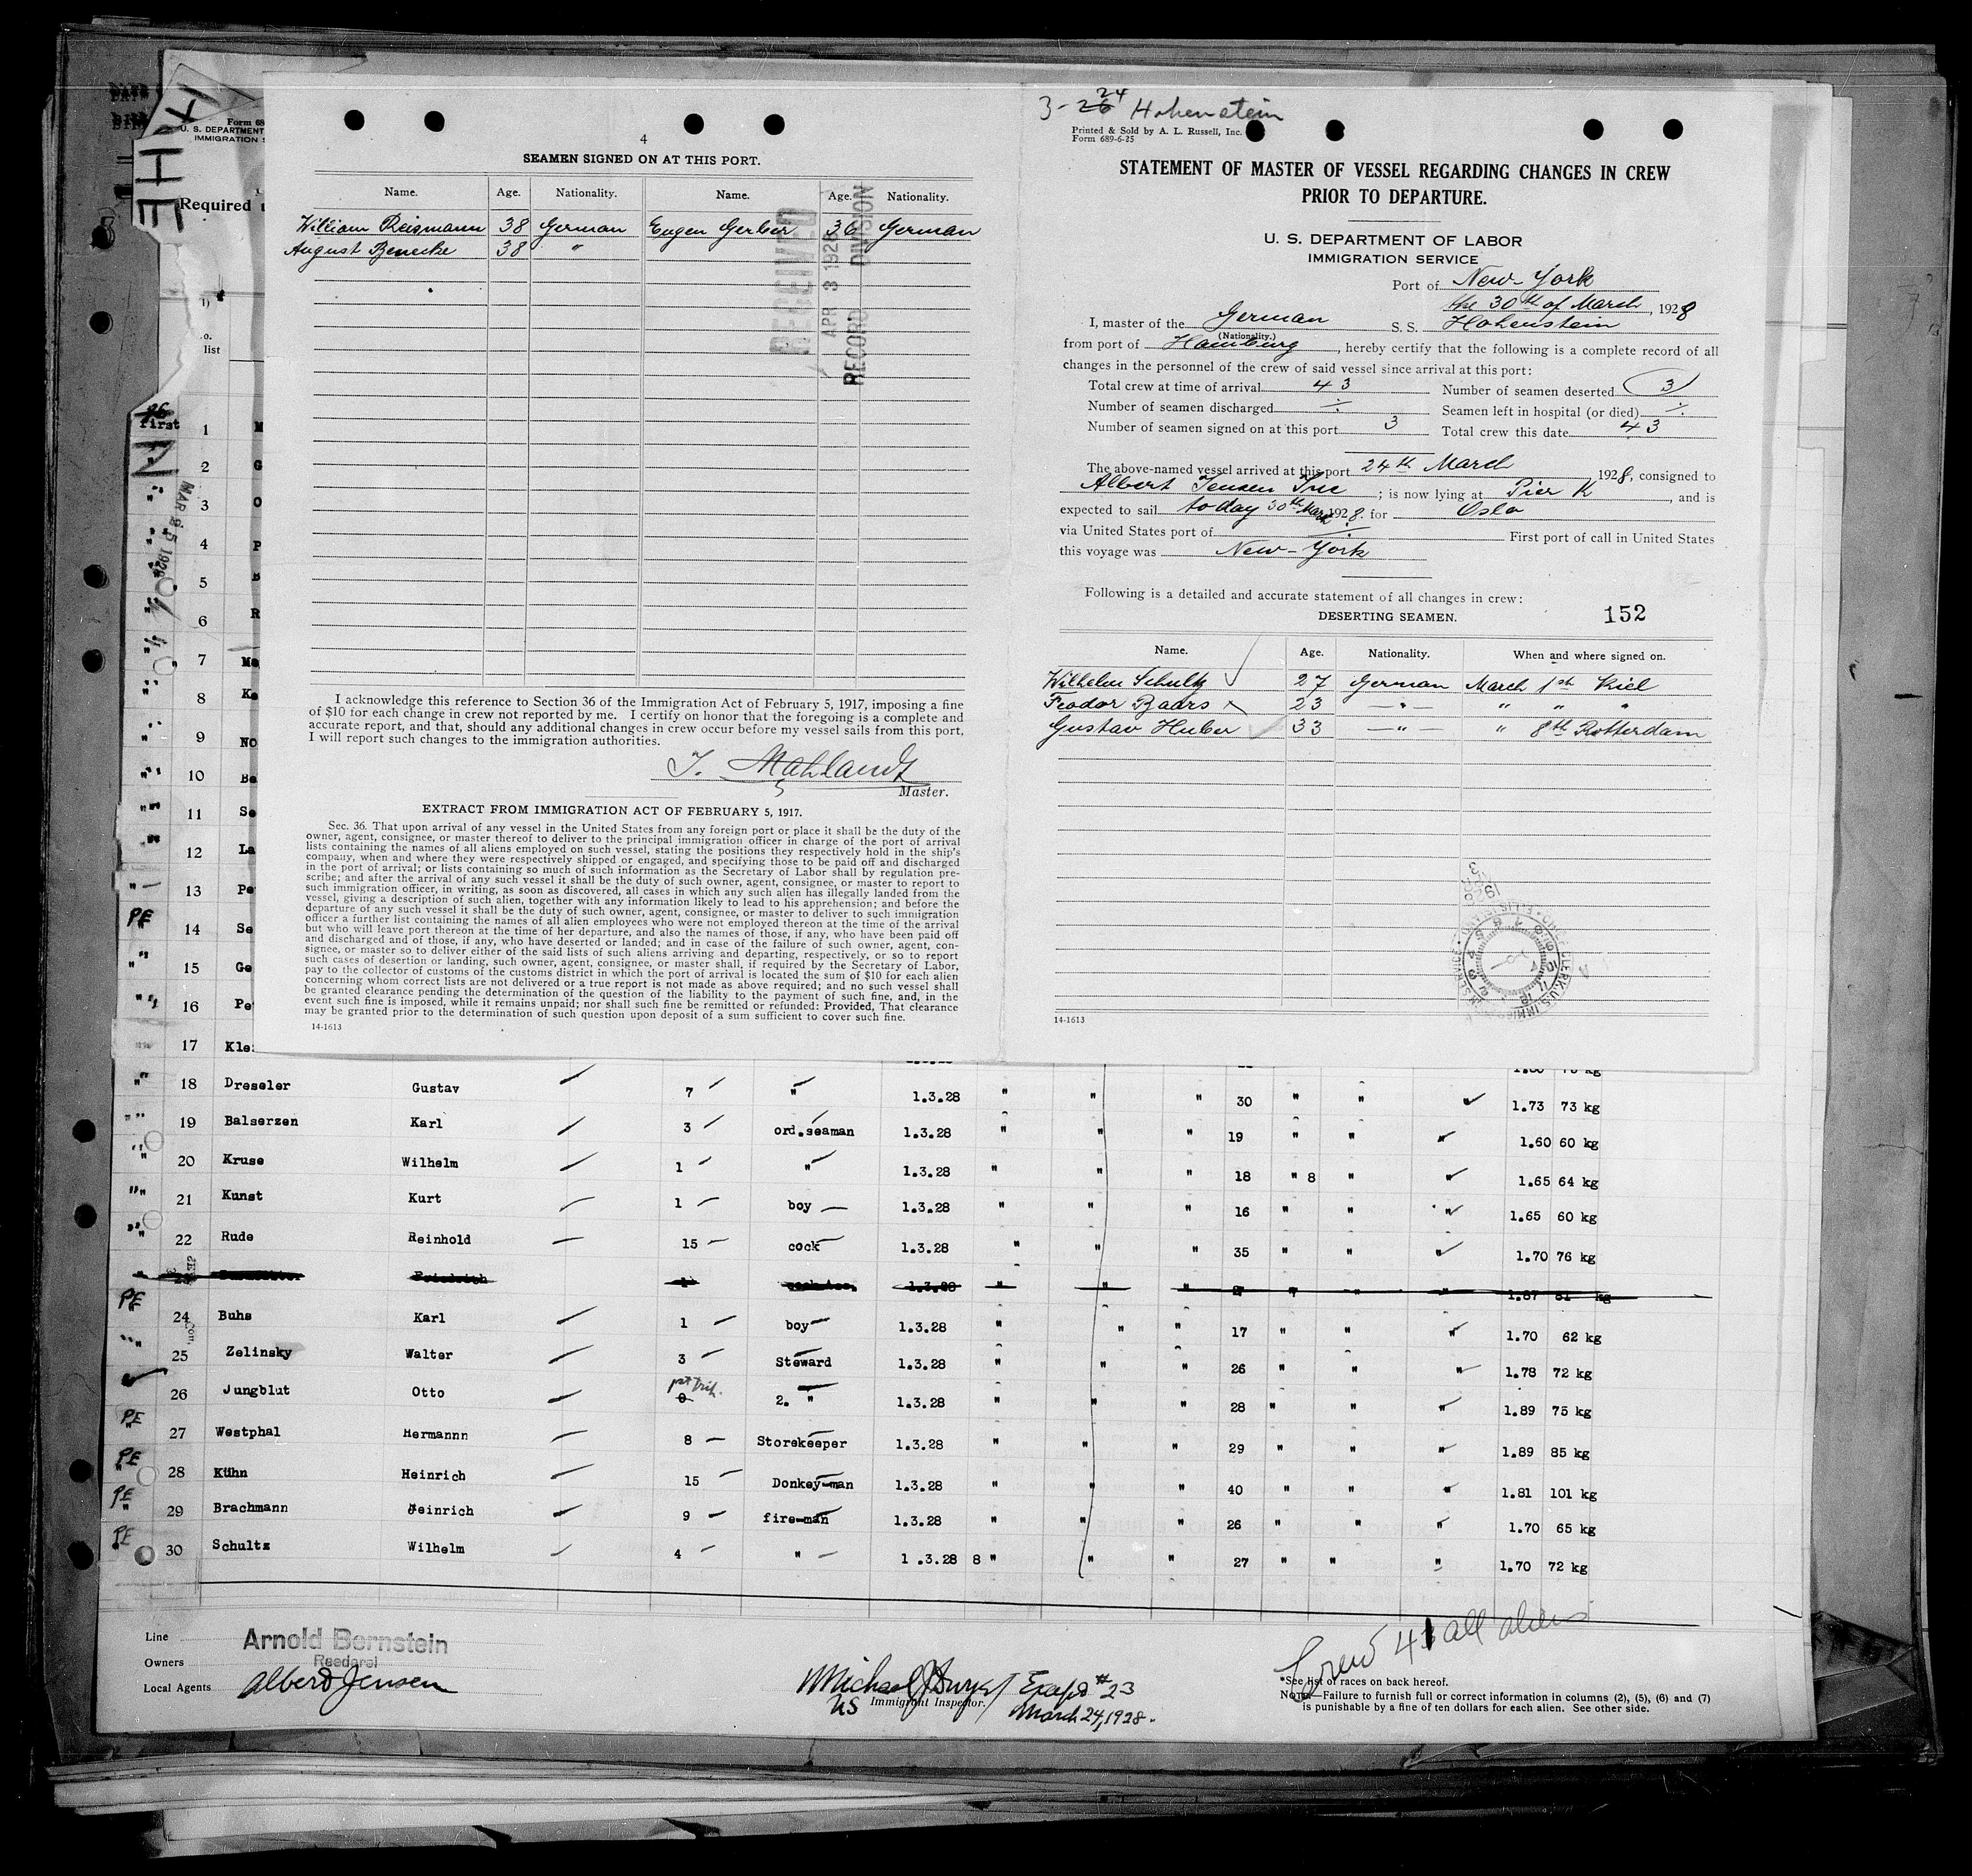 4
SEAMEN SIGNED ON AT THIS PORT.
Name. Age. Nationality. Name. Age. Nationality.
William Reigmann 38 German Eugen Gerber 36 German
August Benecke 38 "
RECEIVED
APR 3 1928
RECORD DIVISION
I acknowledge this reference to Section 36 of the Immigration Act of February 5, 1917, imposing a fine
of $10 for each change in crew not reported by me. I certify on honor that the foregoing is a complete and
accurate report, and that, should any additional changes in crew occur before my vessel sails from this port,
I will report such changes to the immigration authorities.
Master.
EXTRACT FROM IMMIGRATION ACT OF FEBRUARY 5, 1917.
Sec. 36. That upon arrival of any vessel in the United States from any foreign port or place it shall be the duty of the
owner, agent, consignee, or master thereof to deliver to the principal immigration officer in charge of the port of arrival
lists containing the names of all aliens employed on such vessel, stating the positions they respectively hold in the ship's
company, when and where they were respectively shipped or engaged, and specifying those to be paid off and discharged
in the port of arrival; or lists containing so much of such information as the Secretary of Labor shall by regulation pre-
scribe; and after the arrival of any such vessel it shall be the duty of such owner, agent, consignee, or master to report to
such immigration officer, in writing, as soon as discovered, all cases in which any such alien has illegally landed from the
vessel, giving a description of such alien, together with any information likely to lead to his apprehension; and before the
departure of any such vessel it shall be the duty of such owner, agent, consignee, or master to deliver to such immigration
officer a further list containing the names of all alien employees who were not employed thereon at the time of the arrival
but who will leave port thereon at the time of her departure, and also the names of those, if any, who have been paid off
and discharged and of those, if any, who have deserted or landed; and in case of the failure of such owner, agent, con-
signee, or master so to deliver either of the said lists of such aliens arriving and departing, respectively, or so to report
such cases of desertion or landing, such owner, agent, consignee, or master shall, if required by the Secretary of Labor,
pay to the collector of customs of the customs district in which the port of arrival is located the sum of $10 for each alien
concerning whom correct lists are not delivered or a true report is not made as above required; and no such vessel shall
be granted clearance pending the determination of the question of the liability to the payment of such fine, and, in the
event such fine is imposed, while it remains unpaid; nor shall such fine be remitted or refunded: Provided, That clearance
may be granted prior to the determination of such question upon deposit of a sum sufficient to cover such fine.
14-1613
3-24 Hohenstein
Printed & Sold by A. L. Russell, Inc.
Form 689-6-25
STATEMENT OF MASTER OF VESSEL REGARDING CHANGES IN CREW
PRIOR TO DEPARTURE.
U. S. DEPARTMENT OF LABOR
IMMIGRATION SERVICE
Port of New-York
the 30th of March, 1928
I, master of the German S. S. Hohenstein
(Nationality.)
from port of Hamburg, hereby certify that the following is a complete record of all
changes in the personnel of the crew of said vessel since arrival at this port:
Total crew at time of arrival 43 Number of seamen deserted 3
Number of seamen discharged ÷ Seamen left in hospital (or died) ÷
Number of seamen signed on at this port 3 Total crew this date 43
The above-named vessel arrived at this port 24th March 1928, consigned to
Albert Jensen Inc ; is now lying at Pier K, and is
expected to sail today 30th March 1928. for Oslo
via United States port of ÷ First port of call in United States
this voyage was New-York
Following is a detailed and accurate statement of all changes in crew:
DESERTING SEAMEN. 152
Name. Age. Nationality. When and where signed on.
Wilhelm Schultz 27 German March 1st Kiel
Feodor Baars 23 — " — " " "
Gustav Huber 33 — " — " 8th Rotterdam
14-1613
Form 68
U. S. DEPARTMENT
IMMIGRATION
Required
list
first
MAR 25 1928
1 M
2 G
3 O
4 P
5 B
6 R
7 Me
8 Ka
9 NO
10 Be
11 Se
12 La
13 Pe
PE 14 Se
15 Ge
16 Pe
17 Kle
18 Dreseler Gustav 7 " 1.3.28 " " " 30 " " 1.73 73 kg
19 Balserzen Karl 3 ord.seaman 1.3.28 " " " 19 " " " 1.60 60 kg
20 Kruse Wilhelm 1 " 1.3.28 " " " 18 " 8 " " 1.65 64 kg
21 Kunst Kurt 1 boy 1.3.28 " " " 16 " " " 1.65 60 kg
22 Rude Reinhold 15 cock 1.3.28 " " " 35 " " 1.70 76 kg
23 Friedrich 1 1.3.28 " " " " " 1.87 81 kg
PE 24 Buhs Karl 1 boy 1.3.28 " " " 17 " " " 1.70 62 kg
25 Zelinsky Walter 3 Steward 1.3.28 " " " 26 " " " 1.78 72 kg
26 Jungblut Otto 0 2. " 1.3.28 " " " 28 " " " 1.89 75 kg
PE 27 Westphal Hermannn 8 Storekeeper 1.3.28 " " " 29 " " " 1.89 85 kg
PE 28 Kühn Heinrich 15 Donkey-man 1.3.28 " " " 40 " " " 1.81 101 kg
PE 29 Brachmann Heinrich 9 fire-man 1.3.28 " " " 26 " " " 1.70 65 kg
PE 30 Schultz Wilhelm 4 " 1.3.28 8 " " " 27 " " " 1.70 72 kg
Line Arnold Bernstein
Owners Reederei
Local Agents Albert Jensen
Immigrant Inspector.
US
Except #23
March 24, 1928.
Crew 41 all aliens
*See list of races on back hereof.
NOTE.—Failure to furnish full or correct information in columns (2), (5), (6) and (7)
is punishable by a fine of ten dollars for each alien. See other side.